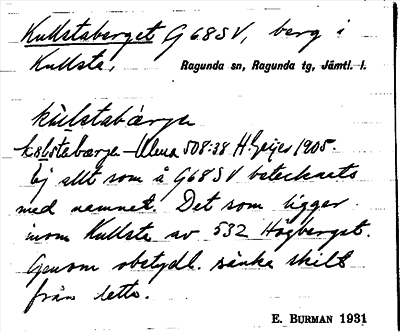 Kullstaberget G 68 SV, berg i
Kullsta,
Ragunda sn, Ragunda tg, Jämtl. l.
kùlstabàrγe
kolstabærge - Ulma 508:38 H. Geijer 1905.
Ej allt som å G 68 SV betecknats
med namnet. Det som ligger
inom Kullsta av 532 Högberget.
Genom obetydl. sänka skilt
från detta.
E. BURMAN 1931